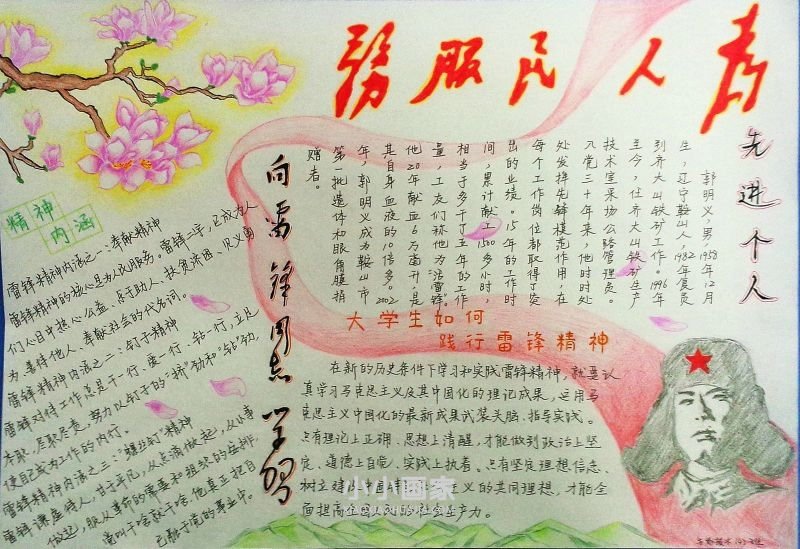 为人民服务
先进个人
郭明义，男，1958年12月
生，辽宁鞍山人，1982年复员
到齐大山铁矿工作。1996年
至今，任齐大山铁矿生产
技术室采场公路管理员。
入党三十年来，他时时处
处发挥先锋模范作用，在
每个工作岗位都取得了突
出的业绩。15年的工作时
间，累计献工1500多小时，
相当于多干了五年的工作
量，工友们称他为“活雷锋”。
他20年献血6万毫升，是
其自身血液的10倍多。2002
年，郭明义成为鞍山市
第一批遗体和眼角膜捐
赠者。
向雷锋同志学习
精神
内涵
雷锋精神内涵之一：奉献精神
雷锋精神的核心是为人民服务。雷锋二字，已成为人
们心目中热心公益、乐于助人、扶贫济困、见义勇
为、善待他人、奉献社会的代名词。
雷锋精神内涵之二：钉子精神
雷锋对待工作总是干一行、爱一行、钻一行，立足
本职、尽职尽责，努力以钉子的“挤”劲和“钻”劲，
使自己成为工作的内行。
雷锋精神内涵之三：“螺丝钉”精神
雷锋谦虚待人，甘于平凡，从点滴做起，从小事
做起，服从革命的需要和组织的安排，
党叫干啥就干啥，他真正把自
己融于党的事业中。
大学生如何
践行雷锋精神
在新的历史条件下学习和实践雷锋精神，就要认
真学习马克思主义及其中国化的理论成果，运用马
克思主义中国化的最新成果武装头脑、指导实践。
只有理论上正确、思想上清醒，才能做到政治上坚
定、道德上自觉、实践上执着。只有坚定理想信念、
树立建设中国特色社会主义的共同理想，才能全
面提高全国人民的社会生产力。
小小画家